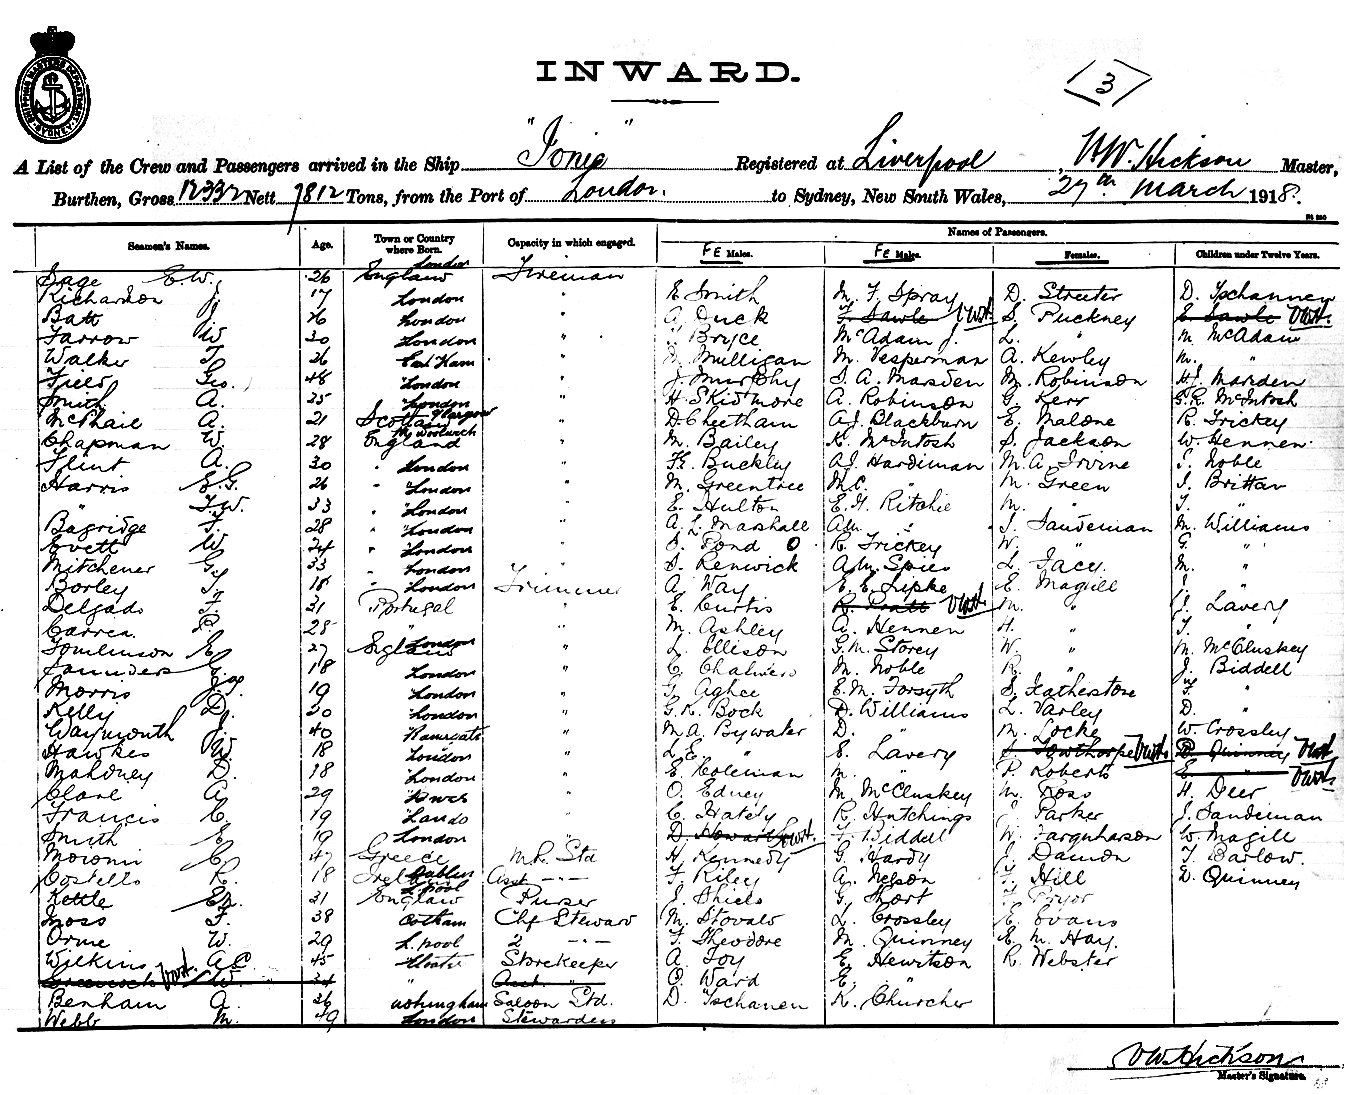 INWARD.
<3>
A List of the Crew and Passengers arrived in the Ship "Ionic" Registered at Liverpool, V.W. Hickson Master,
Burthen, Gross 12332 Nett 7812 Tons, from the Port of London. to Sydney, New South Wales, 27th March 1918.
Names of Passengers.
Seamen's Names. Age. Town or Country where Born. Capacity in which engaged. FE Males. FE Males. Females. Children under Twelve Years.
Sage E.W. 26 England London Fireman
Richardson J. 17 London " E Smith M. F. Spray D. Streeter D. Tschannen
Batt 26 London " A Duck F. Sawle S. Puckney E. Sawle
Farrow W 30 London " Bryce McAdam J. L. " M McAdam
Walker T. 26 East Ham " Milligan M. Vesperman A. Kewley M. "
Field Geo. 48 London " J. Murphy S. A. Marsden M. Robinson H.J. Marsden
Smith A. 25 London " H Skidmore A. Robinson G. Kerr G.R. McIntosh
McPhail A. 21 Scotland Glasgow " D. Cheetham A.J. Blackburn E. Malone R. Trickey
Chapman W. 28 England Woolwich " M. Bailey K. McIntosh S. Jackson W Hennen
Flint A. 30 " London " Buckley A.J. Hardiman M. A. Irvine I. Noble
Harris E.G. 26 " London " M. Greentree M.C. " M. Green I. Brittan
" F.W. 33 " London " E. Hulton E.H. Ritchie M. " I. "
Bagridge F. 28 " London " A. L. Marshall " J. Sandeman M. Williams
Evett W 24 " London " S. Pond O R. Trickey W. " G. "
Mitchener G. 33 " London " S. Renwick A.M. Spies L. Facy. M. "
Borley 18 " London Trimmer A. Way E. E. Lipke E. Magill J. "
Delgado F. 31 Portugal " E. Curtis R. Pratt M. " J. Lavery
Correa P. 28 " " M. Ashley A. Hennen H. " "
Tomlinson E. 27 England London " L. Ellison G.M. Storey W. " M. McCluskey
Saunders Geo 18 London " C. Chalmers M. Noble R. " J. Biddell
Morris 19 London " G. Aghee E.M. Forsyth S. Featherstone F. "
Kelly D. 20 London " G.K. Bock D. Williams L. Varley D. "
Waymouth 40 Ramsgate " M.A. Bywater D. " M. Locke W. Crossley
Hawkes W. 18 London " L.E. " E. Lavery Towthorpe D. Quinney
Mahoney D. 18 London " E Coleman M. " P. Roberts E. "
Clare A. 29 " O. Edney M. McCluskey M. Ross H. Deer
Francis C. 19 " C. Hately R. Hutchings Parker J. Sandeman
Smith E. 19 London " D. Howard Biddell W. Farquharson W. Magill
E. 47 Greece H. Kennedy G. Hardy Damon T. Barlow.
Costello R. 18 Ireland Dublin Asst " F. Riley A. Nelson Hill D. Quinney
Kettle 31 England L'pool Purser J. Shiels G. Short Pryor
Moss F. 38 Chf Steward M. Stovald L. Crossley E. Evans
Orme W. 29 L.pool 2 " F. Theodore M. Quinney E. M. Hay.
Wilkins A.C. 45 Storekeeper A Foy E. Hewitson R. Webster
34 " Asst. " O. Ward E. "
Benham A. 26 Saloon Std. D. Tschanen K. Churcher
Webb M. 49 London Stewardess
V.W. Hickson
Master's Signature.